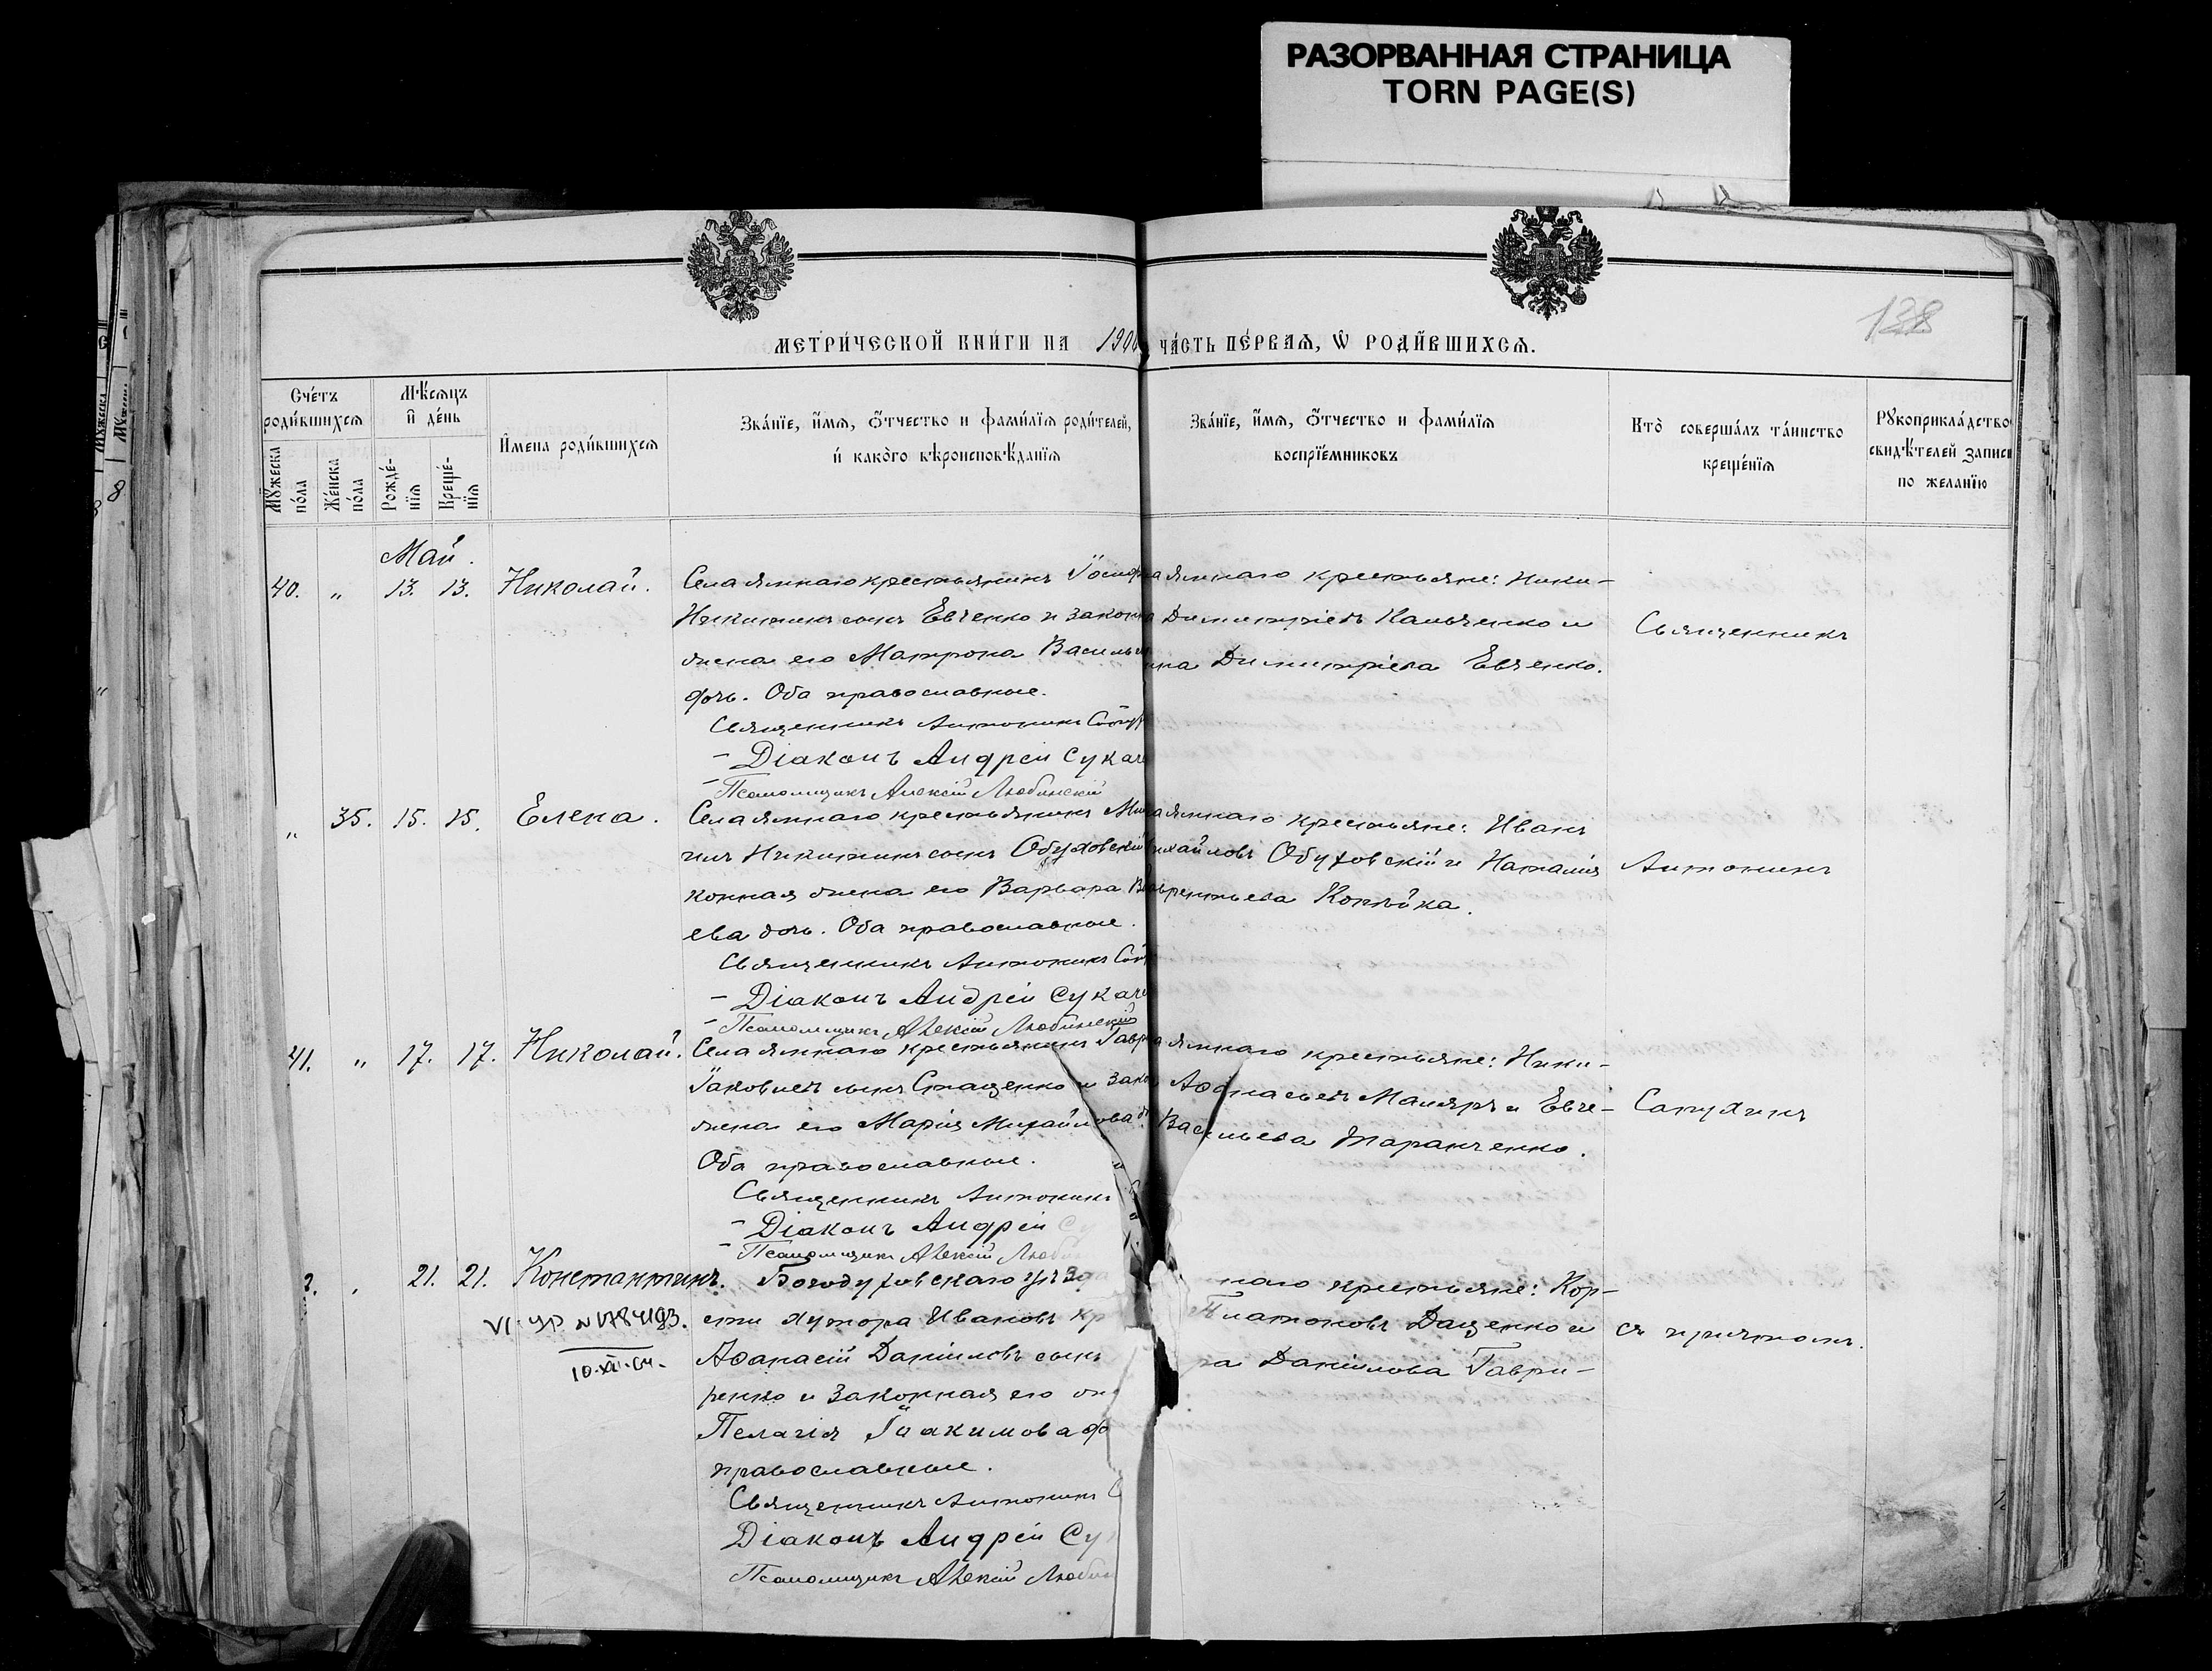 РАЗОРВАННАЯ СТРАНИЦА
TORN PAGE(S)
138
МЕТРИ́ЧЕСКОЙ КНИ́ГИ НА 1900
ЧА́СТЬ ПЕ́РВАѦ, Ѿ РОДИ́ВШИХСѦ.
Сче́тъ роди́вшихсѧ
Мꙋ́жеска по́ла
Же́нска по́ла
Мѣ́сѧцъ и҆ де́нь
Рожде́-нїѧ
Креще́-нїѧ
И҆мена роди́вшихсѧ
Зва́нїе, и҆́мѧ, ѻ҆́тчество и фами́лїѧ роди́телей,
и҆ како́го вѣроисповѣ́данїѧ
Зва́нїе, и҆́мѧ, ѻ҆́тчество и фами́лїѧ
воспрїе́мниковъ
Кто̀ соверша́лъ та́инство
креще́нїѧ
Рꙋкоприкла́дство
свидѣ́телей записи
по желанїю
Май.
40. " 13. 13. Николай.
Села ямнаго крестьянинъ Іосиф
Никитинъ сынъ Евченко и закон
жена его Матрона Василье
дочь. Оба православные.
Священникъ Антонинъ
- Діаконъ Андрей Сукаче
- Псаломщикъ Алексій Любинскій
ямнаго крестьяне: Ники-
Димитріевъ Кальченко и
Димитріева Евченко.
Священникъ
" 35. 15. 15. Елена.
Села ямнаго крестьянинъ Ми
Никитинъ сынъ Обуховскій
конная жена его Варвара
ева дочь. Оба православные.
Священникъ Антонинъ
- Діаконъ Андрей Сукаче
- Псаломщикъ Алексій Любинскій
ямнаго крестьяне: Иванъ
ихайловъ Обуховскій и Наталія
врентьева Копѣйка.
Антонинъ
41. " 17. 17. Николай.
Села ямнаго крестьянинъ Гавр
Іаковлевъ сынъ Стаценко и зако
жена его Марія Михайлова
Оба православные.
Священникъ Антонинъ
- Діаконъ Андрей Су
- Псаломщикъ Алексій Люби
ямнаго крестьяне: Ники-
Аѳанасьевъ Маляръ и Евге-
Васильева Таранченко.
Сапухинъ
2. 21. 21. Константинъ.
VI-УР N 1784193.
10-XII-64.
Богодуховскаго уѣзда
сти хутора Ивановъ кр
Аѳанасій Даніиловъ сынъ
ренко и законная его
Пелагія Іоакимова до
православные.
Священникъ Антонинъ С
Діаконъ Андрей Су
Псаломщикъ Алексій Люби
наго крестьяне: Кор-
Платоновъ Даценко и
Даніилова Гаври-
съ причтомъ.